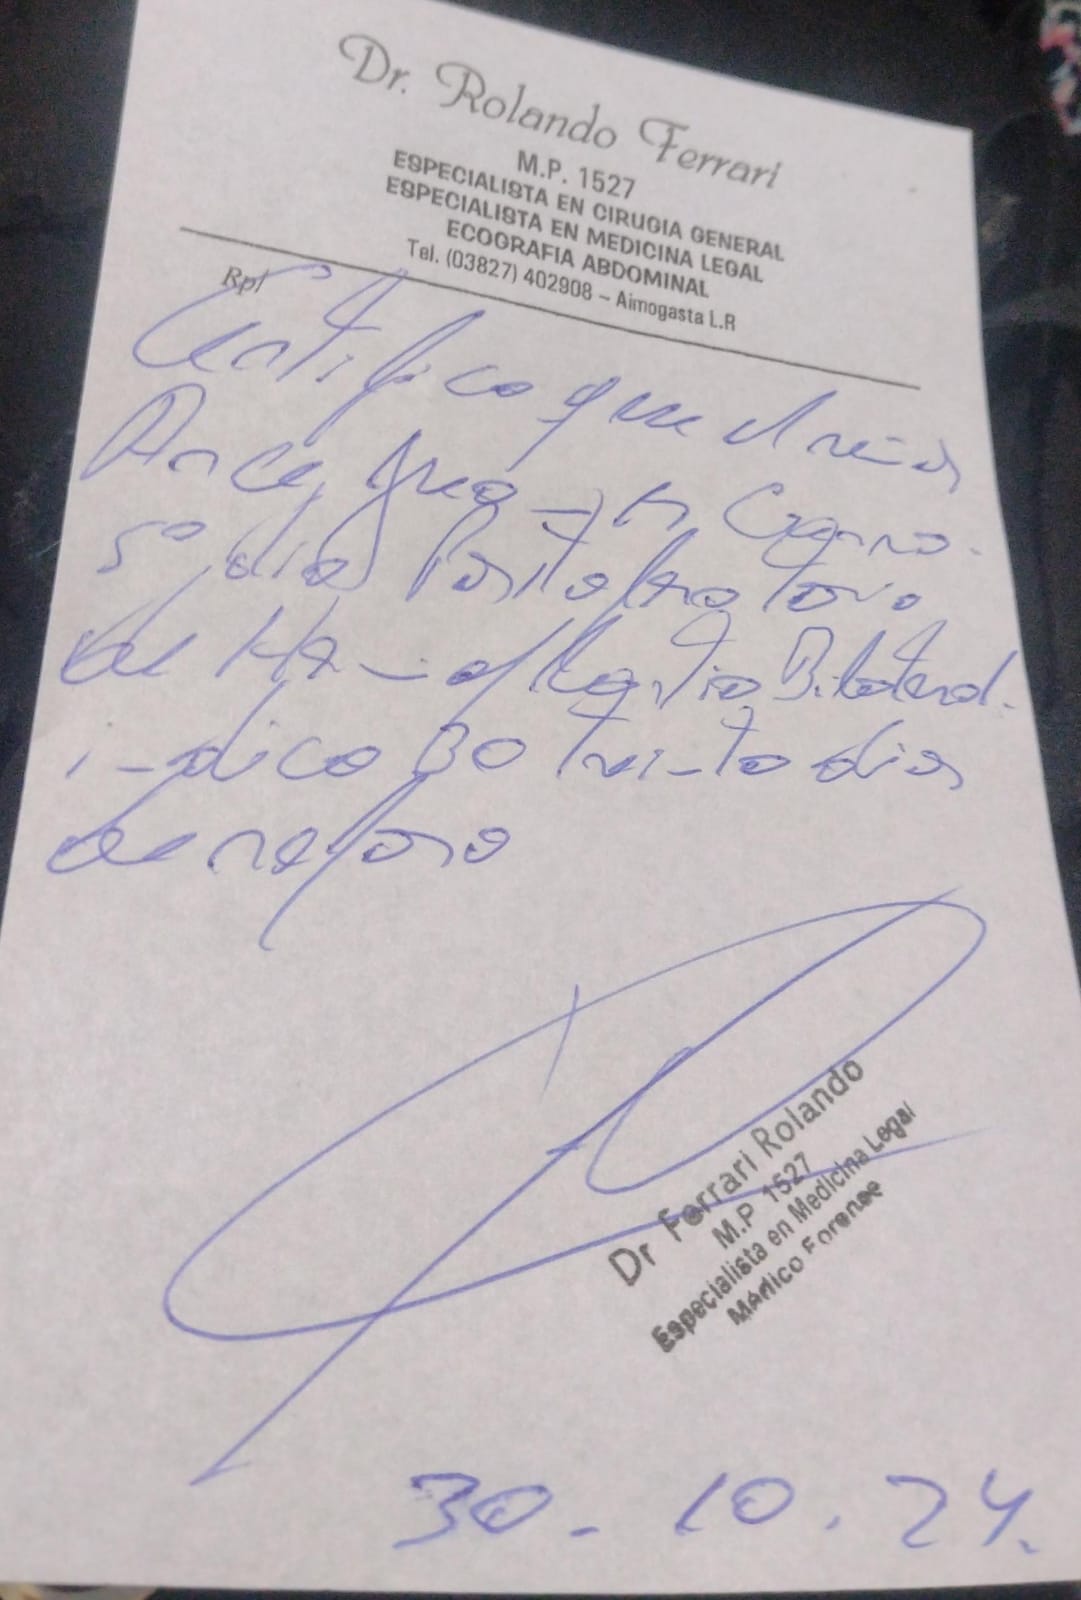 Dr. Rolando Ferrari
M.P. 1527
ESPECIALISTA EN CIRUGIA GENERAL
ESPECIALISTA EN MEDICINA LEGAL
ECOGRAFIA ABDOMINAL
Tel. (03827) 402908 - Aimogasta L.R
Rp/
Certifico que el niño
Arce,
5º día Postoperatorio
de Bilateral.
indico 30 treinta dias
de reposo
Dr Ferrari Rolando
M.P 1527
Especialista en Medicina Legal
Médico Forense
30.10.24.